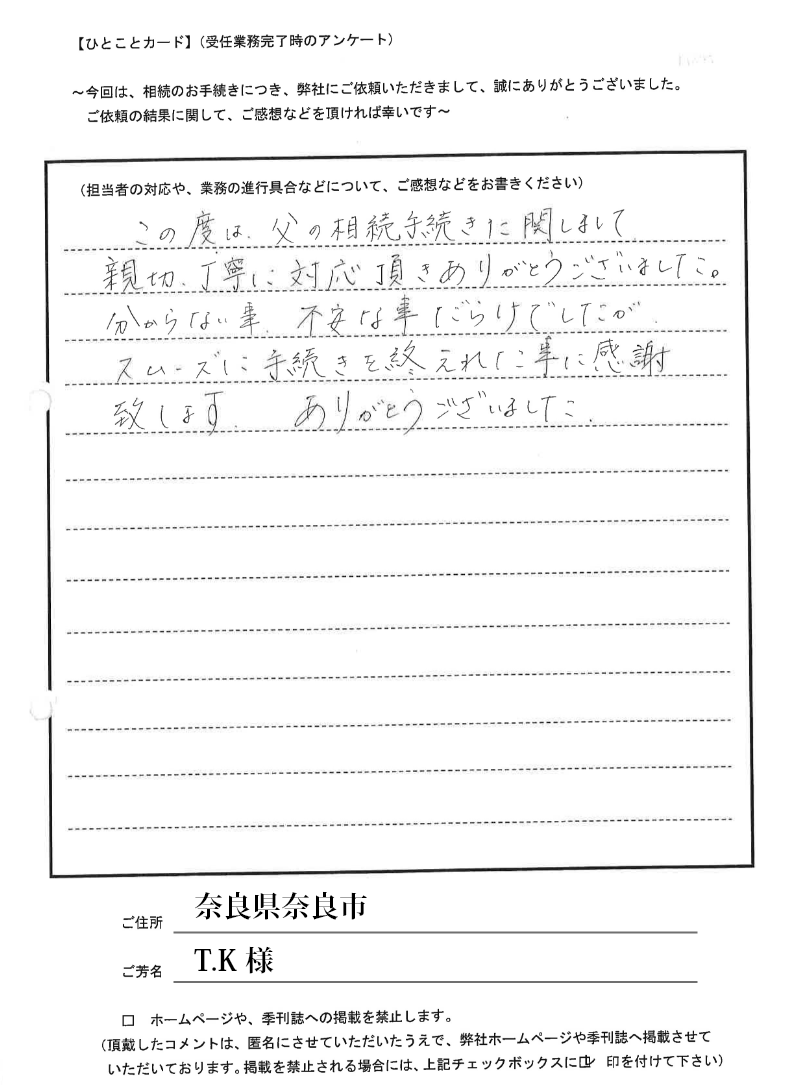 【ひとことカード】（受任業務完了時のアンケート）
～今回は、相続のお手続きにつき、弊社にご依頼いただきまして、誠にありがとうございました。
ご依頼の結果に関して、ご感想などを頂ければ幸いです～
（担当者の対応や、業務の進行具合などについて、ご感想などをお書きください）
この度は、父の相続手続きに関しまして
親切、丁寧に対応頂きありがとうございました。
分からない事、不安な事だらけでしたが、
スムーズに手続きを終えれた事に感謝
致します。 ありがとうございました。
ご住所 奈良県奈良市
ご芳名 T.K 様
□ ホームページや、季刊誌への掲載を禁止します。
（頂戴したコメントは、匿名にさせていただいたうえで、弊社ホームページや季刊誌へ掲載させて
いただいております。掲載を禁止される場合には、上記チェックボックスに☑ 印を付けて下さい）